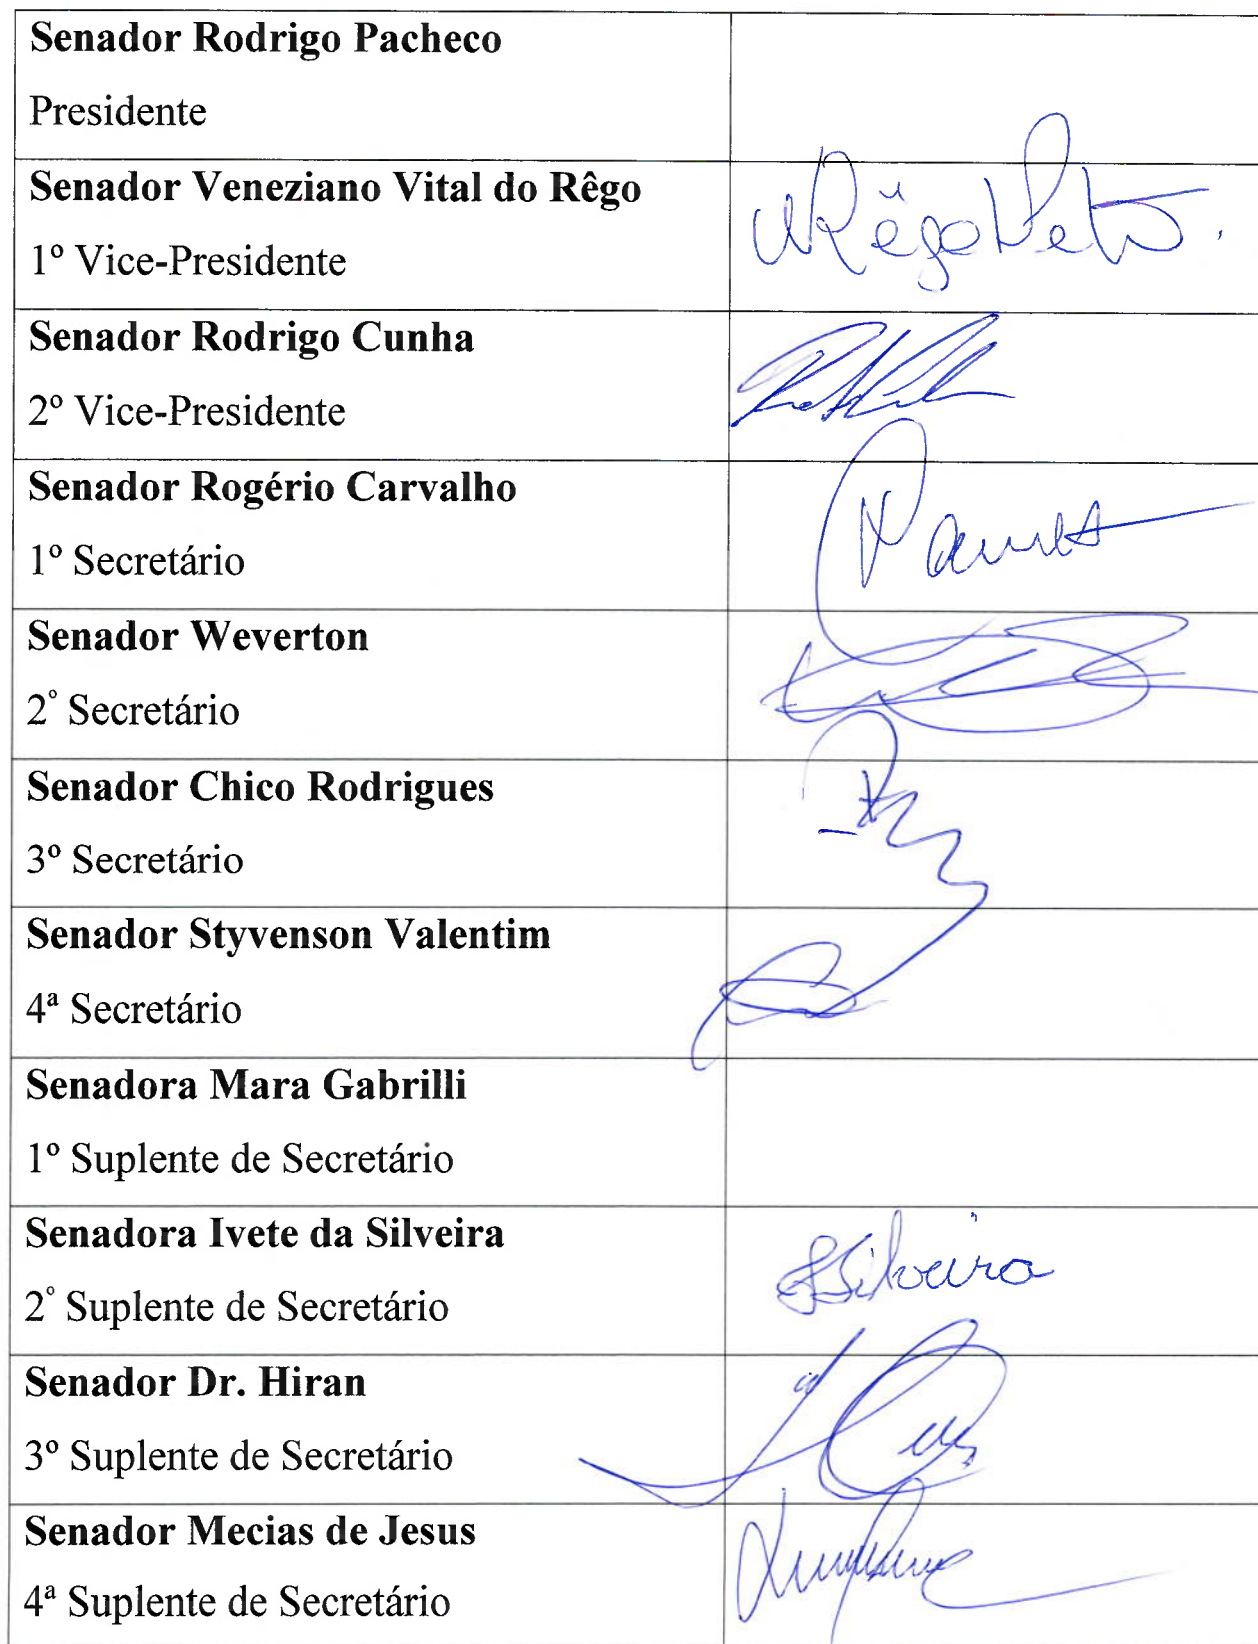 Senador Rodrigo Pacheco
Presidente
Senador Veneziano Vital do Rêgo
1º Vice-Presidente
Senador Rodrigo Cunha
2º Vice-Presidente
Senador Rogério Carvalho
1º Secretário
Senador Weverton
2° Secretário
Senador Chico Rodrigues
3º Secretário
Senador Styvenson Valentim
4ª Secretário
Senadora Mara Gabrilli
1º Suplente de Secretário
Senadora Ivete da Silveira
2° Suplente de Secretário
Silveira
Senador Dr. Hiran
3º Suplente de Secretário
Senador Mecias de Jesus
4ª Suplente de Secretário